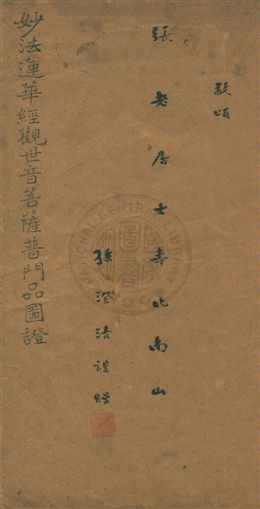 敬頌
張老居士壽比南山
孫澄清謹贈
妙法蓮華經觀世音菩薩普門品圖證
NATIONAL CENTRAL LIBRARY